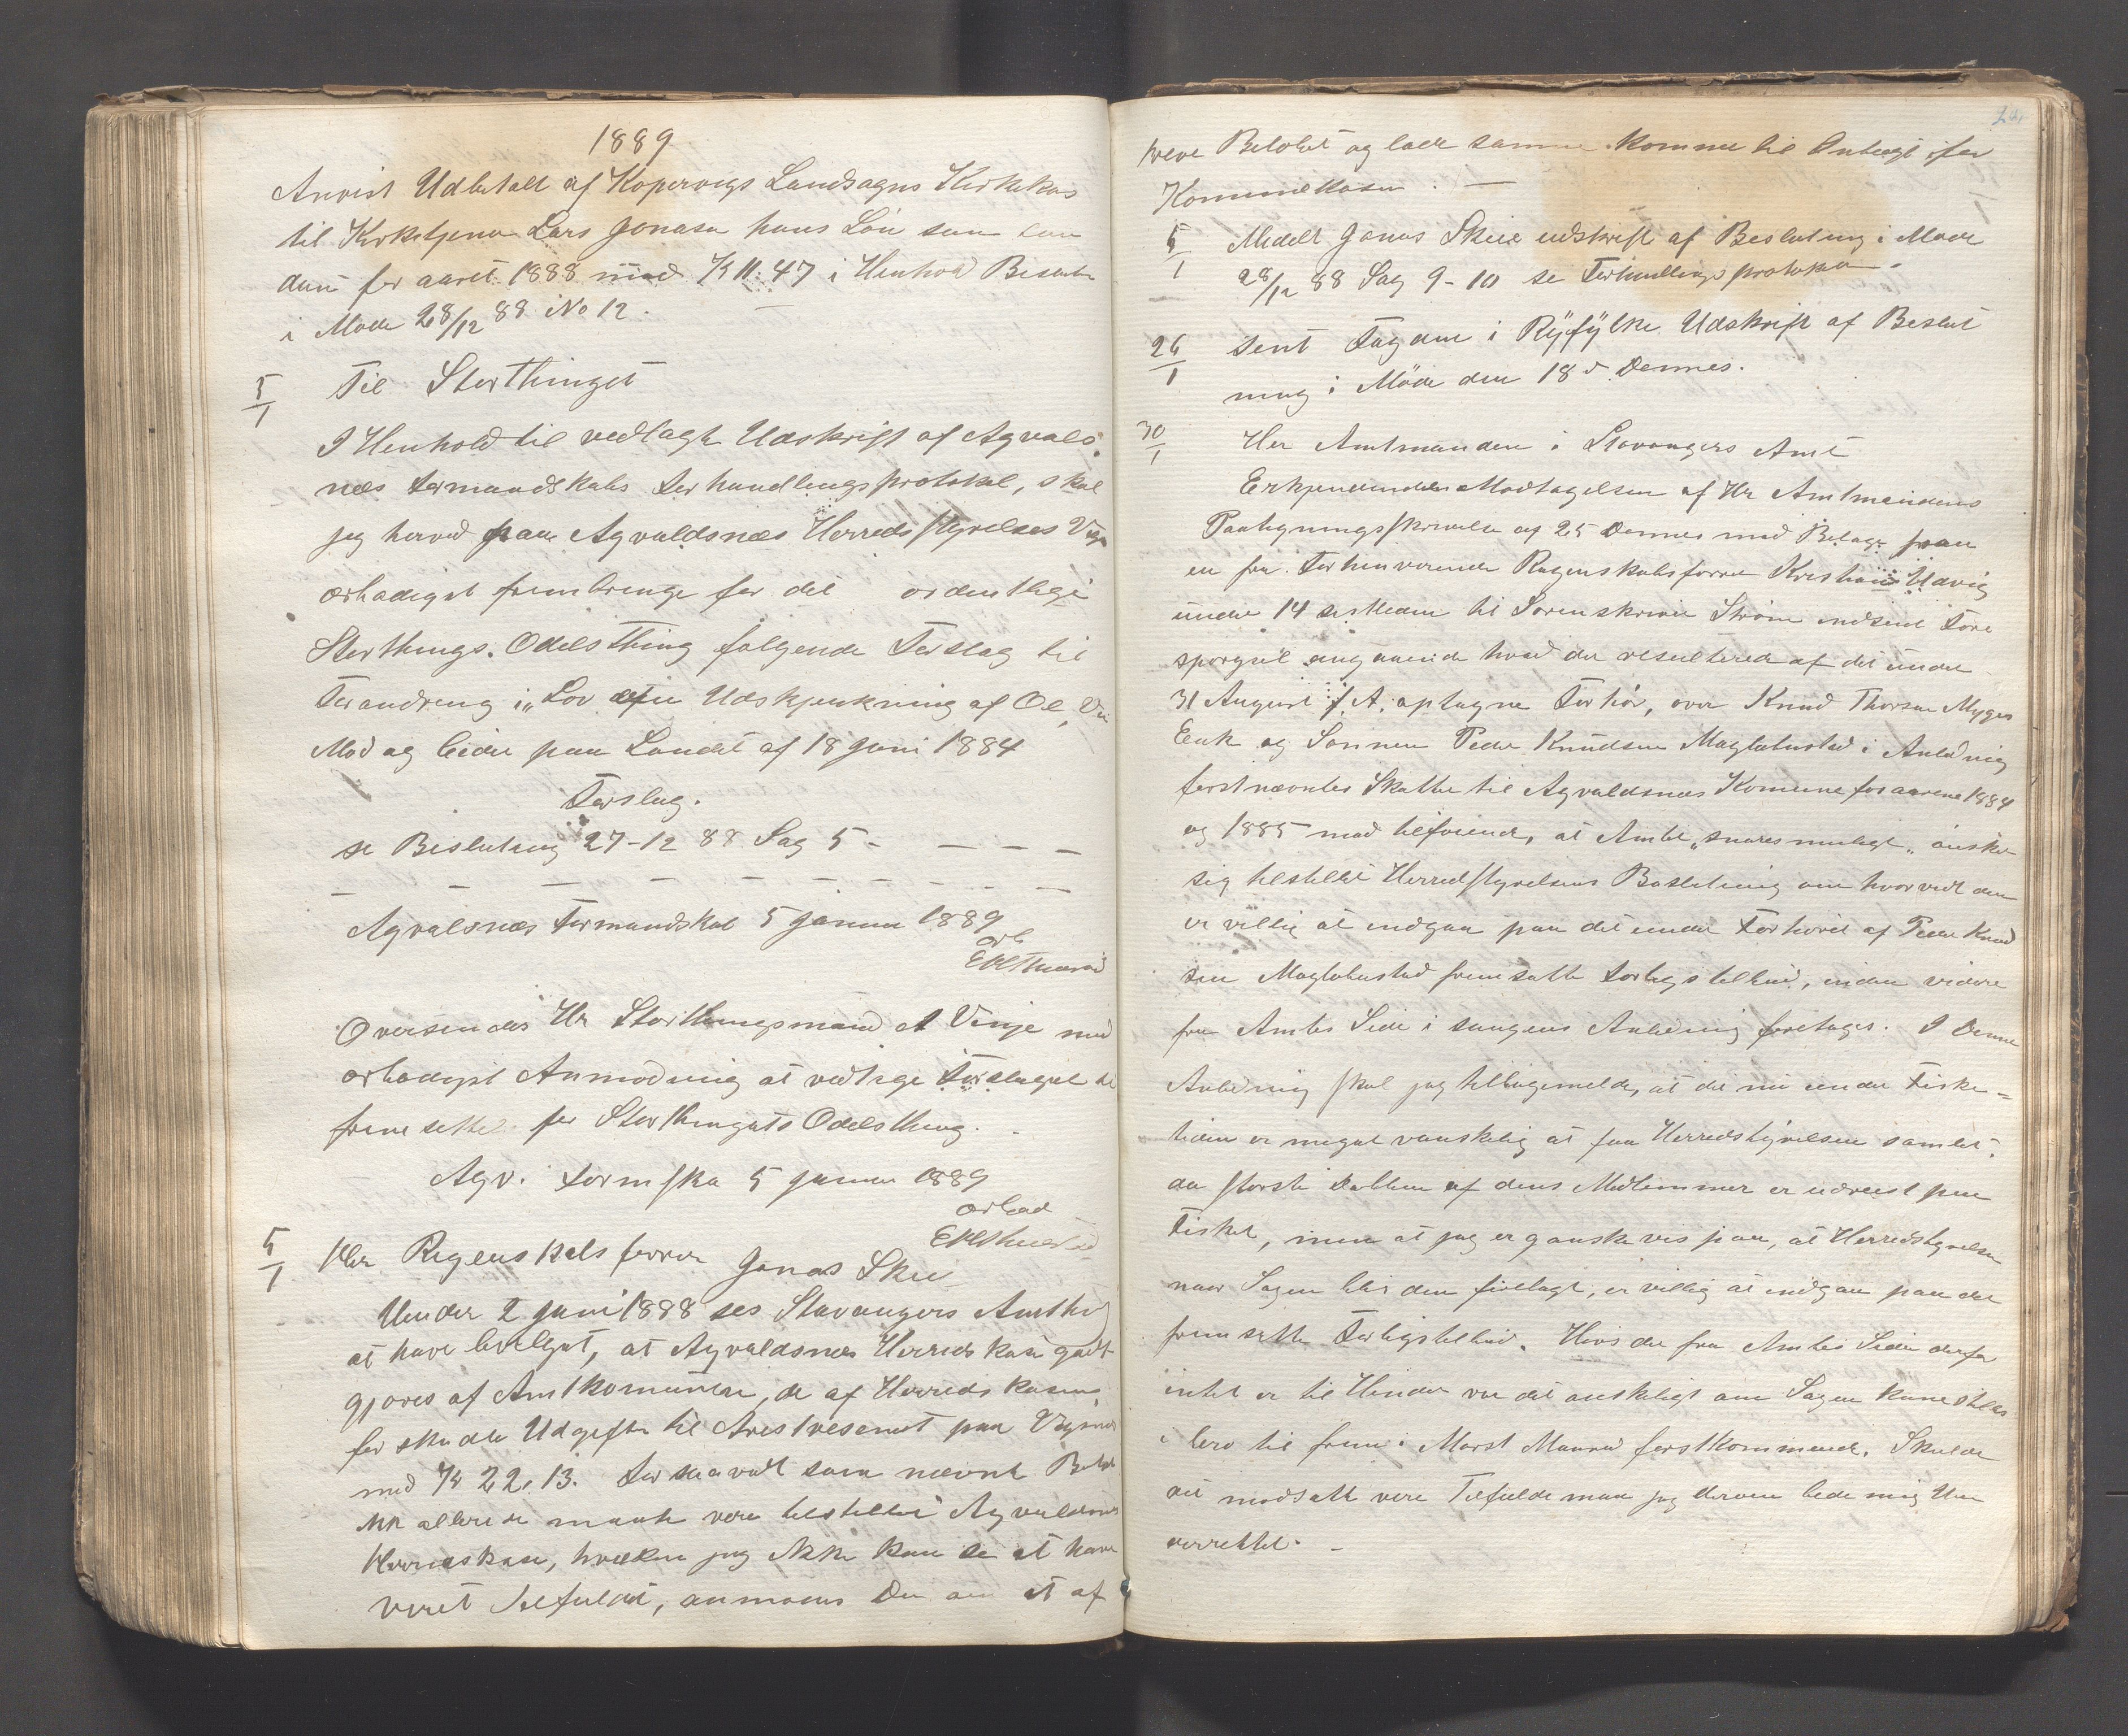 1889
Anvist Udbetalt af Kopervigs Landsogns Kirkekas
til Kirketjener Lars Jonasen hans Lön som saa
dan for aaret 1888 med Kr 11.47 i Henhold Beslutn
i Møde 28/12 88 No 12.
5/1 Til Storthinget
I Henhold til vedlagte Udskrift af Agvals-
næs Formandskabs Forhandlingsprotokol, skal
jeg herved paa Agvaldsnæs Herredsstyrelses Vegne
ærbødigst frembringe for det ordentlige
Storthings Odelsthing følgende Forslag til
Forandring i „Lov om Udskjenkning af Øl, Vin
Mød og Cider paa Landet af 18 Juni 1884
Forslag.
se Beslutning 27-12 88 Sag 5 - — — —
— — — — — — — — — —
Agvalsnes Formandskab 5 Januar 1889
ærb

Oversendes Hr Storthingsmand A Vinje med
ærbødigst Anmodning at vedtage Forslaget til
fremsettelse for Storthingets Odelsthing.
Agv. Formska 5 Januar 1889
ærbød

5/1 Hr Regenskabsfører Jonas Skeie
Under 2 Juni 1888 ses Stavangers Amtthing
at have bevilget, at Agvaldsnes Herredskasse godt
gjøres af Amtkomunen, de af Herredskassen
forskudte Udgifter til Arestvesenet paa
med Kr 22,13. Forsaavidt som nævnte Beløb
ikke allerede maatte være tilstillet Agvaldsnes
Herredskasse, hvilken jeg ikke kan se at have
veret Tilfeldet, anmodes De om at af
kreve Beløbet og lade samme komme til Indtægt for
Kommunekassen. —
5/1 Medelt Jonas Skeie udskrift af Beslutning i Møde
28/12 88 Sag 9-10 se Forhandlingsprotokollen.
26/1 Sent Fogden i Ryfylke Udskrift af Beslut
ning i Möde den 18 d Dennes.
30/1 Her Amtmanden i Stavangers Amt
Erkjendende Modtagelsen af Hr Amtmandens
Paategningsskrivelse af 25 Dennes med Bilage paa
en fra Forhenværende Regenskabsfører Kristian Udvig
under 14 sistleden til Sorenskriver Strøm indsent Fore
spørgsel angaaende hvad der resulterede af det under
31 August f. A. optagne Forhør, over Knud Thorsen Myge
Eenk og Sønnen Peder Knudsen Magletustad i Anledning
førstnævntes Skatter til Agvaldsnæs Komune for aarene 1884
og 1885 med tilføiende, at Amtet „snarest muligt„ ønsker
sig tilstillet Herredsstyrelsens Beslutning om hvorvidt den
er villig at indgaa paa det under Forhøret af Peder Knud
sen Magletustad fremsatte Forligstilbud, inden videre
fra Amtets Side i sagens Anledning foretages. I Denne
Anledning skal jeg tilbagemelde, at det nu under Fiske-
tiden er meget vanskelig at faa Herredstyrelsen samlet,
da største Parten af dens Medlemmer er udreist paa
Fisket, men at jeg er ganske vis paa, at Herredstyrelsen
naar Sagen blir den forelagt, er villig at indgaa paa det
fremsatte Forligstilbud. Hvis der fra Amtets Side derfor
intet er til Hinder var det ønskeligt om Sagen kunne stilles
i bero til frem i Marst Maaned førstkommende. Skulde
det modsatte være Tilfelde maa jeg derom bede mig Un
derrettet. —